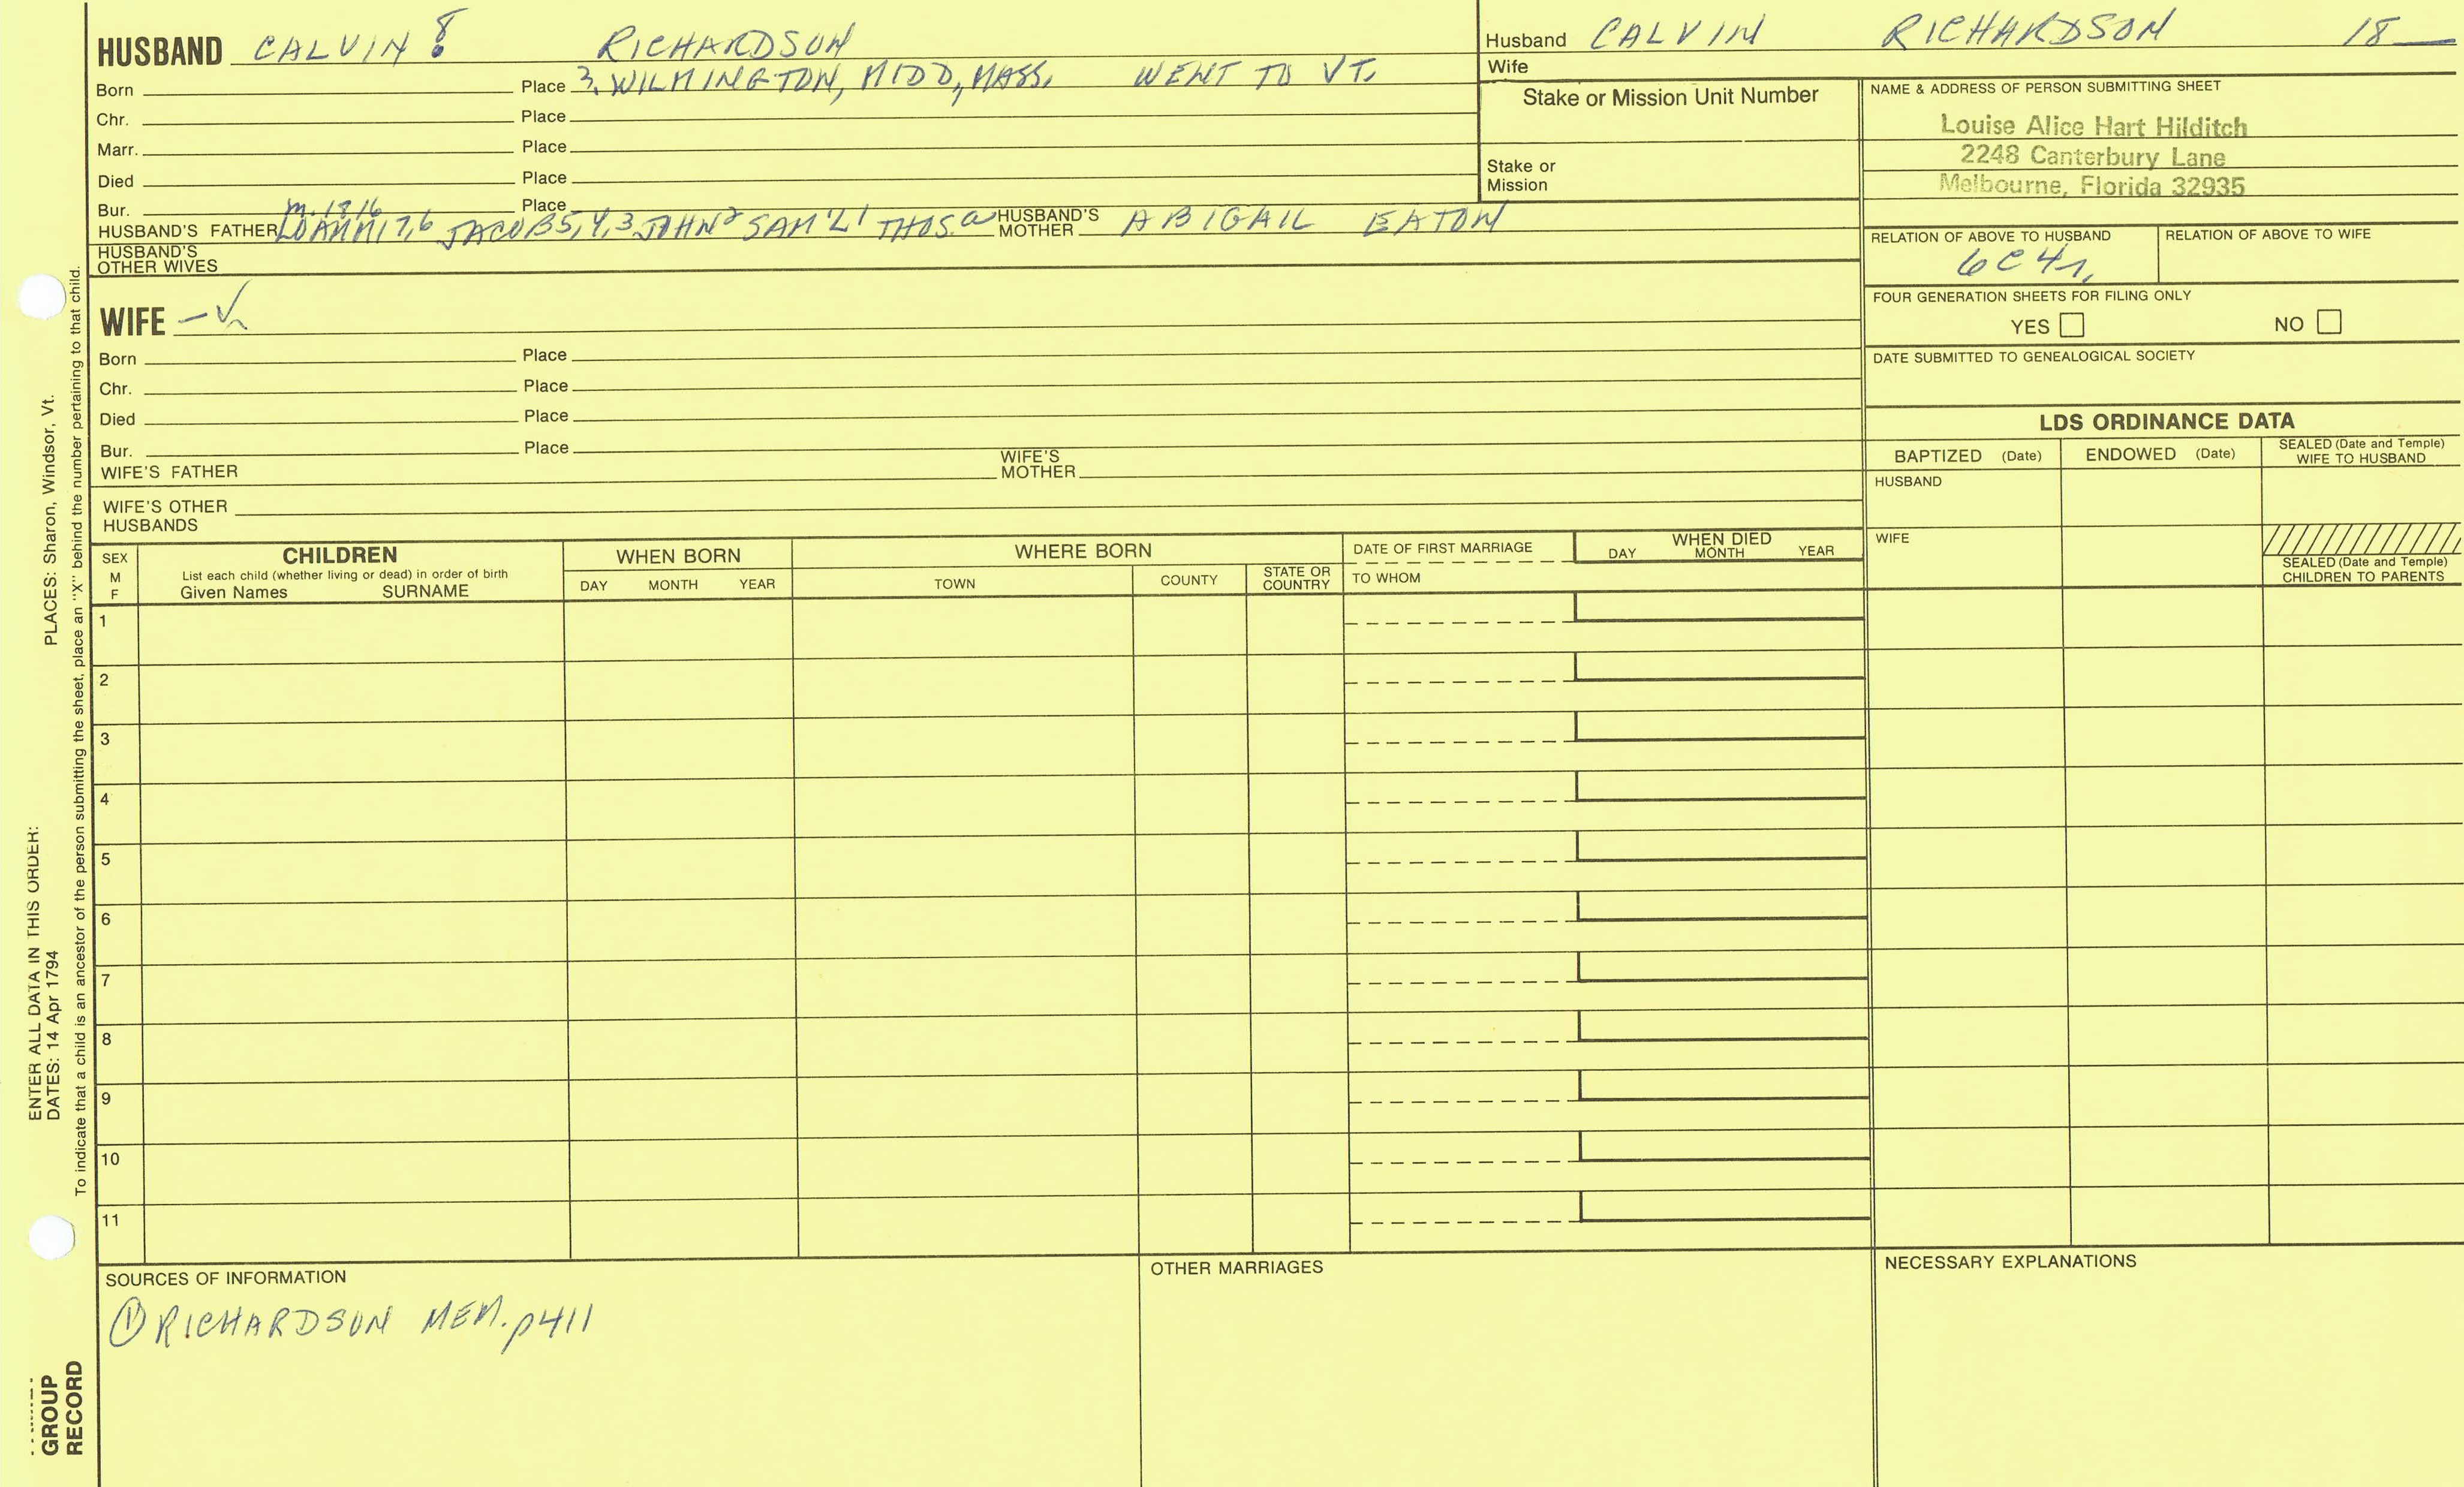 HUSBAND CALVIN 8 RICHARDSON
Born Place 3. WILMINGTON, MIDD, MASS. WENT TO VT.
Chr. Place
Marr. Place
Died Place
Bur. m. 1816 Place
HUSBAND'S FATHER LOAMMI 7,6 JACOB 5,4,3 JOHN 2 SAM'L 1 THOS. a HUSBAND'S MOTHER ABIGAIL EATON
HUSBAND'S OTHER WIVES
Husband CALVIN RICHARDSON 18
Wife
Stake or Mission Unit Number
Stake or
Mission
NAME & ADDRESS OF PERSON SUBMITTING SHEET
Louise Alice Hart Hilditch
2248 Canterbury Lane
Melbourne, Florida 32935
RELATION OF ABOVE TO HUSBAND RELATION OF ABOVE TO WIFE
6C4r.
FOUR GENERATION SHEETS FOR FILING ONLY
YES NO
DATE SUBMITTED TO GENEALOGICAL SOCIETY
WIFE
Born Place
Chr. Place
Died Place
Bur. Place
WIFE'S FATHER WIFE'S MOTHER
WIFE'S OTHER
HUSBANDS
LDS ORDINANCE DATA
BAPTIZED (Date) ENDOWED (Date) SEALED (Date and Temple) WIFE TO HUSBAND
HUSBAND
WIFE
SEALED (Date and Temple)
CHILDREN TO PARENTS
SEX
M
F
CHILDREN
List each child (whether living or dead) in order of birth
Given Names SURNAME
WHEN BORN
DAY MONTH YEAR
WHERE BORN
TOWN COUNTY STATE OR COUNTRY
DATE OF FIRST MARRIAGE
TO WHOM
WHEN DIED
DAY MONTH YEAR
1
2
3
4
5
6
7
8
9
10
11
SOURCES OF INFORMATION
① RICHARDSON MEM. p411
OTHER MARRIAGES
NECESSARY EXPLANATIONS
ENTER ALL DATA IN THIS ORDER:
DATES: 14 Apr 1794 PLACES: Sharon, Windsor, Vt.
To indicate that a child is an ancestor of the person submitting the sheet, place an "X" behind the number pertaining to that child.
GROUP
RECORD